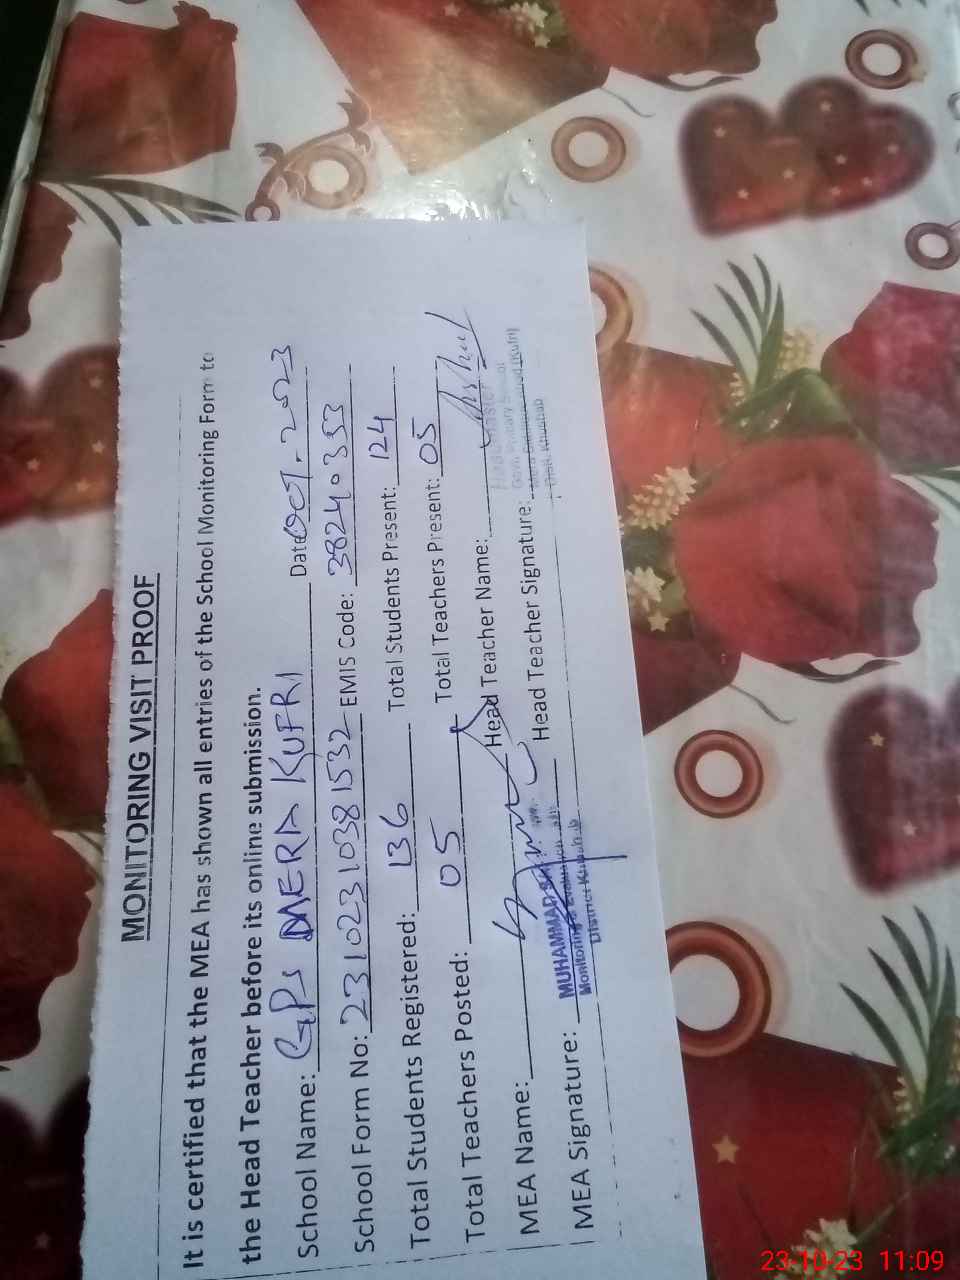 MONITORING VISIT PROOF
It is certified that the MEA has shown all entries of the School Monitoring Form to
the Head Teacher before its online submission.
School Name: GPS DAERA KUFRI Date OCT-2023
School Form No: 23102310381532 EMIS Code: 38240353
Total Students Registered: 136 Total Students Present: 124
Total Teachers Posted: 05 Total Teachers Present: 05
MEA Name: Head Teacher Name:
MEA Signature: Head Teacher Signature:
MUHAMMAD
Monitoring & Evaluation
District Khushab
Headmaster
Govt. Primary School
(Kufri)
Distt. Khushab
23-10-23 11:09